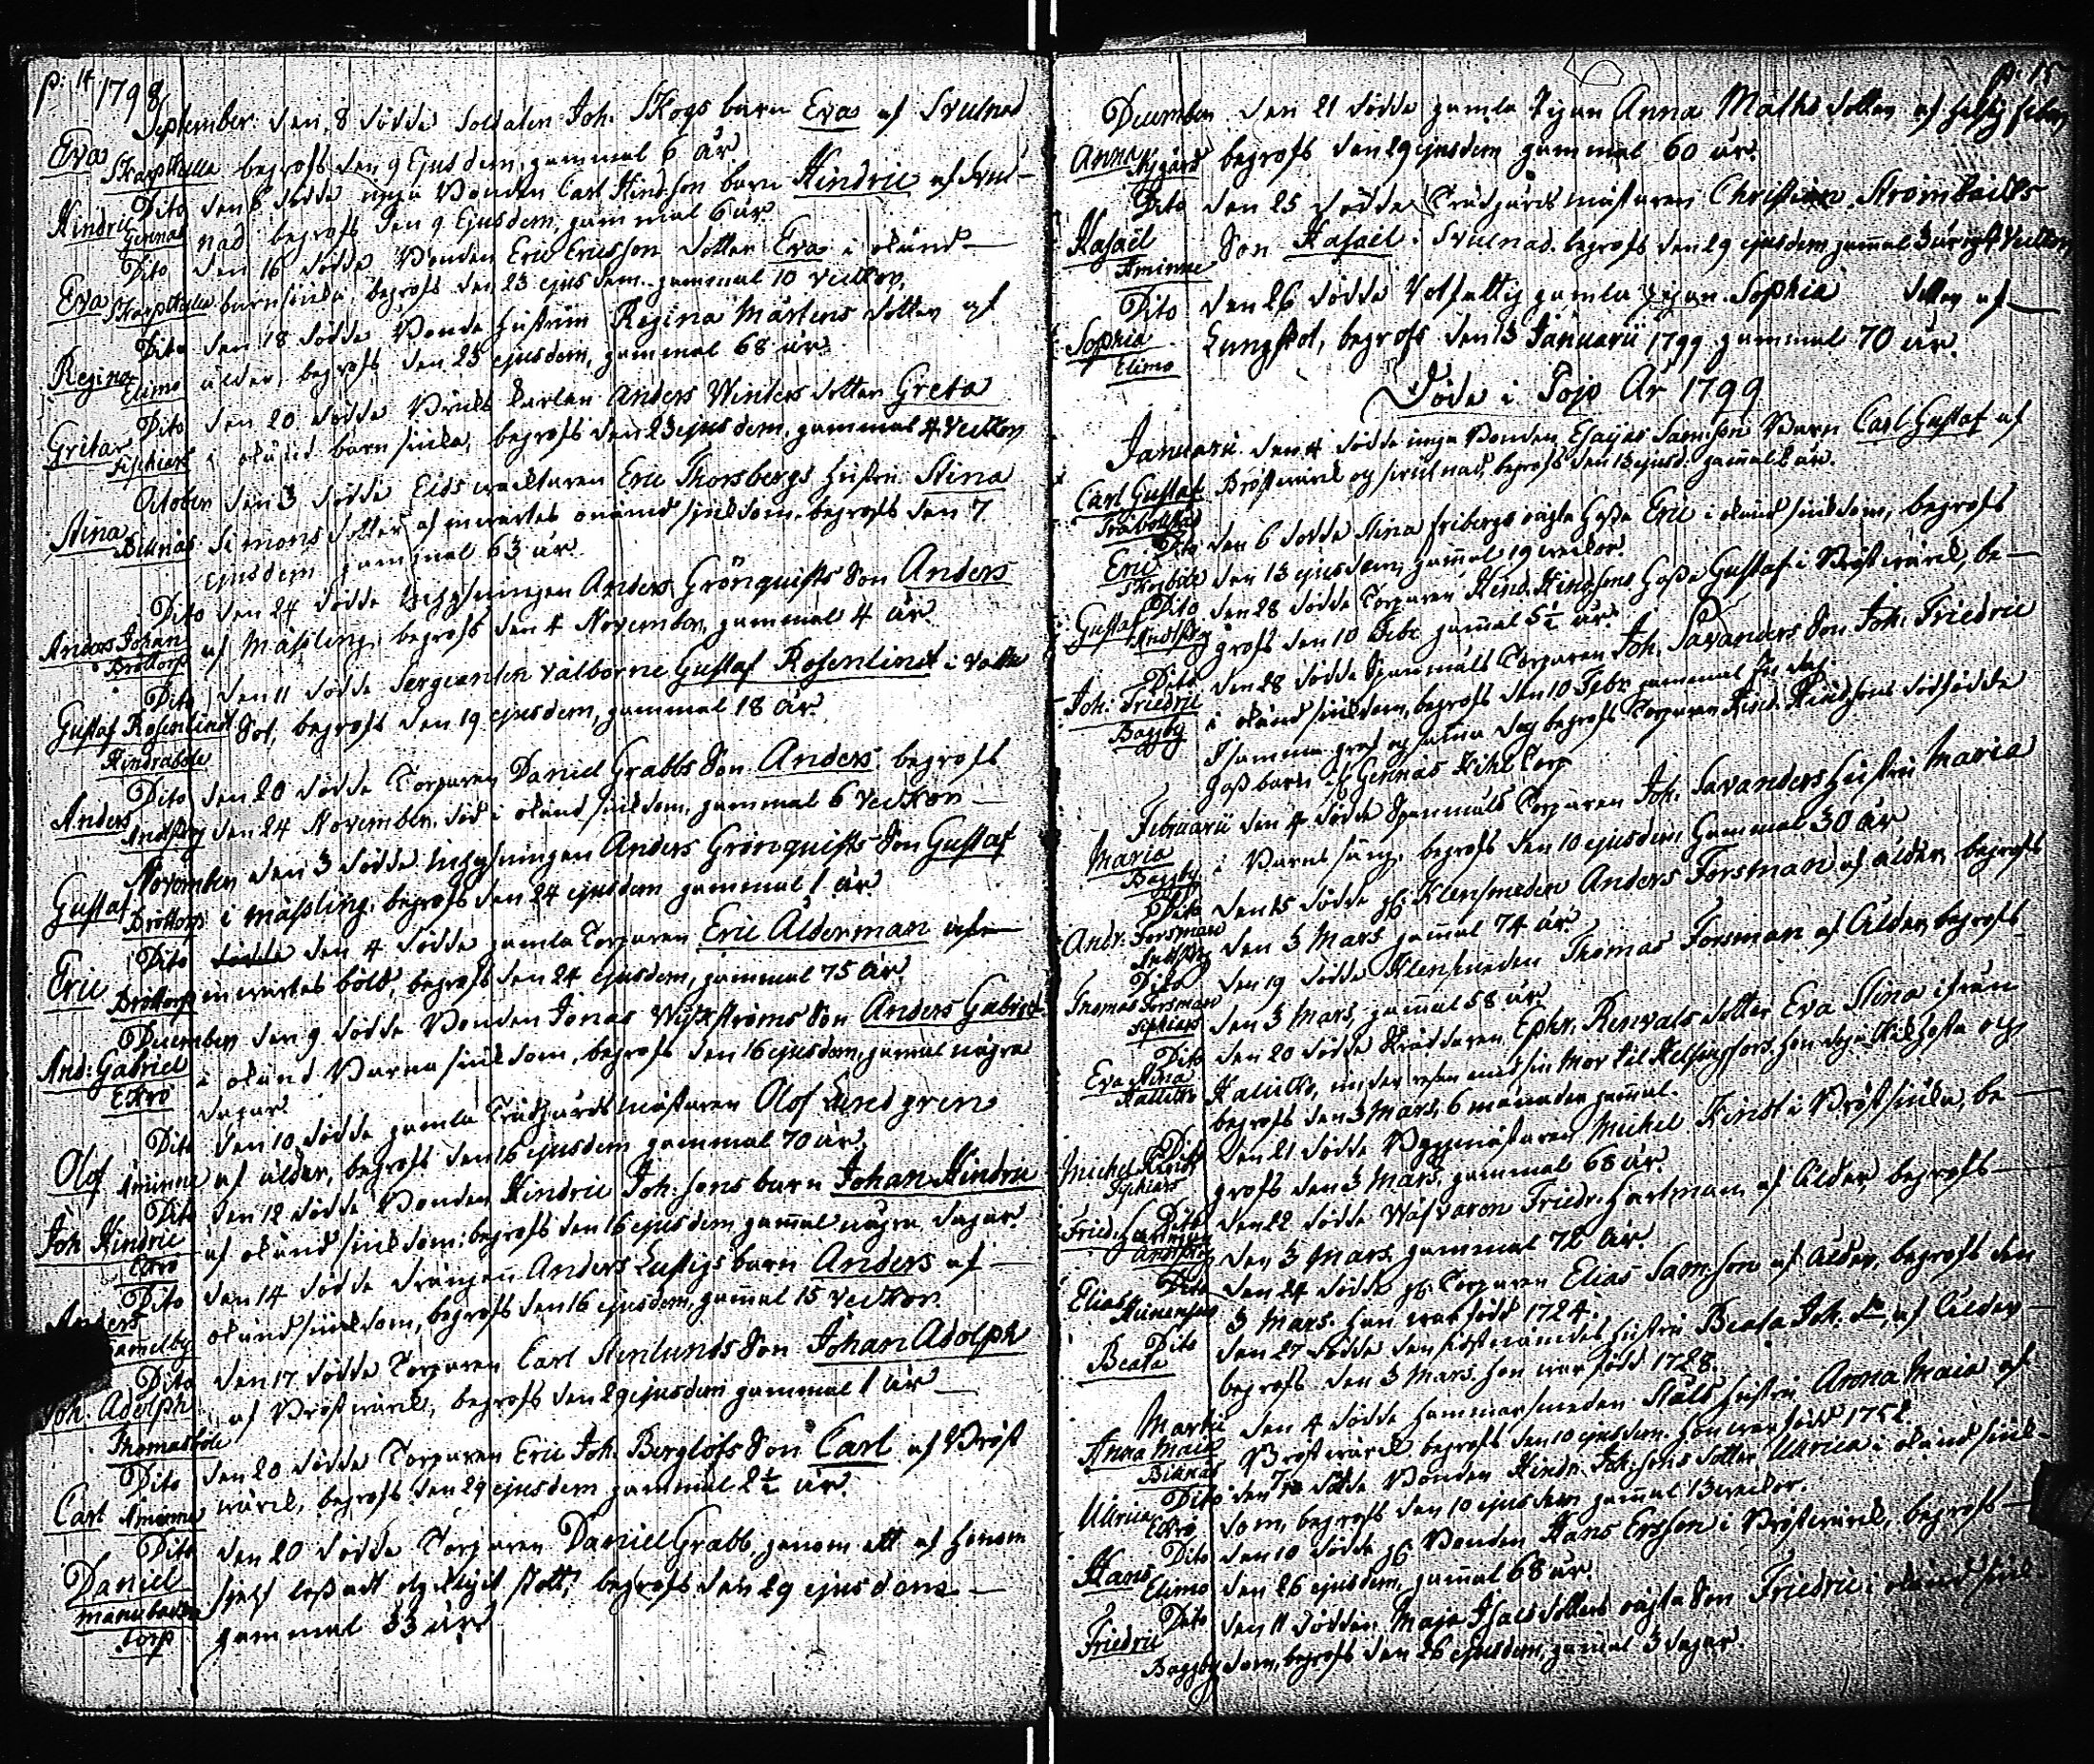 p: 14 1798
September den 8 dödde Soldaten Joh. Skogs barn Eva af Svulnad
Eva Skarpkulla begrofs den 9 Ejusdem, gammal 6 år
Dito den 8 dödde unga Bonden Carl Hindsson barn Hindric af Svul-
Hindric Gennäs nad begrofs den 9 Ejusdem, gammal 6 år
Dito den 16 dödde Bonden Eric Ericsson dotter Eva i okänd
Eva Skarpkulla barnsiuka, begrofs den 23 ejusdem gammal 10 veckor.
Dito den 18 dödde Bonde hustrun Regina Mårtens dotter af
Regina Elimo ålder, begrofs den 23 ejusdem, gammal 68 år
Dito den 20 dödde Bruks karlen Anders Winters dotter Greta
Greta Fischiars i okänd barnsiuka, begrofs den 23 ejusdem, gammal 4 veckor
October den 3 dödde Elds wacktaren Eric Thorsbergs hustru Stina
Stina Billnäs Simons dotter af invertes okänd siukdom begrofs den 7
ejusdem gammal 63 år
Dito den 24 dödde Inhysningen Anders Grönquists Son Anders
Anders Johan Brottorp af Mässling, begrofs den 4 November, gammal 4 år.
Dito den 11 dödde Sergeanten välborne Gustaf Rosenlindt i Vatte
Gustaf Rosenlindt Hindraböle Sot, begrofs den 19 ejusdem, gammal 18 år.
Dito den 20 dödde Torparen Daniel Grabbs Son Anders, begrofs
Anders Andtskog den 24 November. död i okänd siukdom, gammal 6 veckor
November den 3 dödde Inhysningen Anders Grönquists Son Gustaf
Gustaf Brottorp i Mässling, begrofs den 24 ejusdem gammal 1 år
Dito den 4 dödde gamla Torparen Eric Ålderman af
Eric Brottorp invertes böld, begrofs den 24 ejusdem, gammal 75 år.
December den 9 dödde Bonden Jonas Wikströms Son Anders Gabriel
And: Gabriel Ekerö i okänd Barnasiukdom, begrofs den 16 ejusdem, gamal några
dagar
Dito den 10 dödde gamla Trädgårdsmästaren Olof Lundgren
Olof Åminne af ålder, begrofs den 16 ejusdem gammal 70 år.
Dito den 12 dödde Bonden Hindric Joh:sons barn Johan Hindric
Joh Hindric Ekerö af okänd siukdom: begrofs den 16 ejusdem, gamal några dagar.
Dito den 14 dödde drängen Anders Lustigs barn Anders af
Anders okänd siukdom, begrofs den 16 ejusdem, gamal 15 veckor.
Dito den 17 dödde Torparen Carl Stenlunds Son Johan Adolph
Joh. Adolph Thomasböle af Bröstwärck, begrofs den 29 ejusdem gammal 1 år
Dito den 20 dödde Torparen Eric Joh. Berglöfs Son Carl af Bröst
Carl Åminne wärck, begrofs den 29 ejusdem gammal 2 ½ år.
Dito den 20 dödde Torparen Daniel Grabb, genom ett af honom
Daniel sjelf lossadt olyckligit skott, begrofs den 29 ejusdem
Manubacka torp gammal 33 år
p: 15
December den 21 dödde gamla Pigan Anna Maths dotter af heftig feber,
Anna Nygård begrofs den 29 ejusdem gammal 60 år.
Dito den 25 dödde Trädgårdsmästaren Christian Strömbäcks
Kasaël Åminne Son Kasaël. Svulnad. begrofs den 29 ejusdem, gamal 3 år veckor
Dito den 26 dödde Vålfattig gamla Pigan Sophia dotter af
Sophia Elimo Lungsot, begrofs den 13 Januarii 1799 gammal 70 år.
Döde i Pojo År 1799
Januarii den 4 dödde unga Bonden Esaijas Samsons Barn Carl Gustaf af
Carl Gustaf Bröstwärck og svulnad, begrofs den 13 ejusd. gamal 2 år.
Dito den 6 dödde Stina Fribergs oägta Gosse Eric i okänd siukdom, begrofs
Eric Skogböle den 13 ejusdem, gamal 19 weckor.
Dito den 28 dödde Torparen Hind. Hindsons Gosse Gustaf i Bröstwärck, be-
Gustaf Andtskog grofs den 10 Febr. gamal 5½ år
Dito den 28 dödde Spanmåls Torparen Joh. Savanders Son Joh. Friedric
Joh: Friedric Baggby i okänd siukdom, begrofs den 10 Febr. gammal
I samma graf og samma dag begrofs Torparen Hind. Hindsons dödfödde
Gossbarn af Gennäs Kihl Torp
Februarii den 4 dödde Spanmåls Torparen Joh. Savanders hustru Maria
Maria Baggby i Barnsäng, begrofs den 10 ejusdem, Gammal 30 år
Dito den 15 dödde gl. Klensmeden Anders Forsman af ålder, begrofs
Andr. Forsman Andtskog den 3 Mars gamal 74 år.
Dito den 19 dödde Klensmeden Thomas Forsman af Ålder, begrofs
Thomas Forsman Fischiars den 3 Mars, gamal 58 år.
Dito den 20 dödde Skräddaren Ephr. Renvals dotter Eva Stina ifrån
Eva Stina under resan med sin Mor til Helsingfors. hon dog i Kikhosta og
begrofs den 3 Mars, 6 månader gamal.
Dito den 21 dödde Byggmästaren Michel Kindt i Bröstsiuka, be-
Michel Kindt Fischiars grofs den 3 Mars, gammal 68 år.
Dito den 22 dödde Wäfvaren Friedr. Hartman af Ålder begrofs
Fried. Hartman Andtskog den 3 Mars gammal 72 år.
Dito den 24 dödde gl. Torparen Elias Samson af Ålder, begrofs den
Elias 3 Mars. han war född 1724.
Dito den 27 dödde den sistnämdes hustru Beata Joh: Dr, af Ålder
Beata begrofs den 3 Mars. hon war född 1728.
Martii den 4 dödde hammarsmeden Ståls hustru Anna Maia af
Anna Maia Billnäs Bröstwärck begrofs den 10 ejusdem. hon war född 1752.
Dito den 7 dödde Bonden Hindr. Joh:sons dotter Ulrica i okänd siuk-
Ulrica Ekerö dom, begrofs den 10 ejusdem gamal 13 weckor.
Dito den 10 dödde gl. Bonden Hans Ersson i Bröstwärck, begrofs
Hans Elimo den 26 ejusdem, gamal 68 år.
Dito den 11 dödde Maja Isacsdotters oägta Son Friedric i okänd siuk-
Friedric Baggby dom, begrofs den 26 ejusdem, gamal 3 dagar.